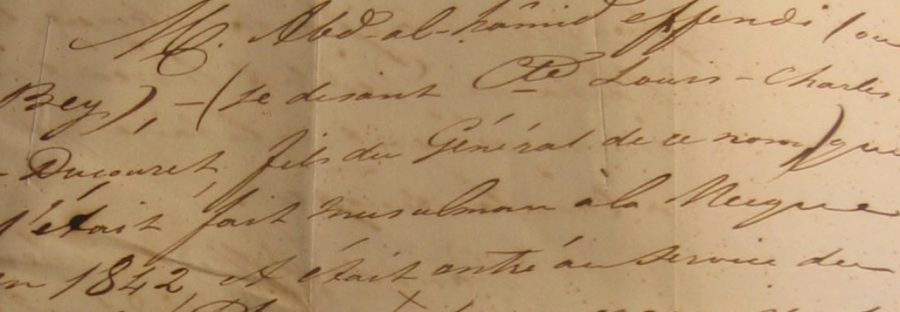 M. Abd-al-hâmid effendi (ou
Bey), – (se disant Cte Louis-Charles-
- Ducouret, fils du Général de ce nom) que
s'était fait musulman à la Mecque
en 1842, et était entré au service du